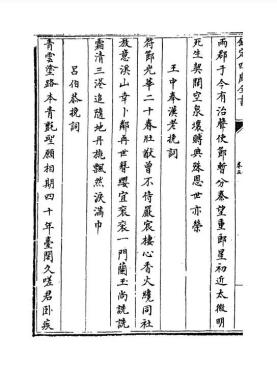 欽定四庫全書
卷五
兩郡于今有治聲使節暫分秦望重郎星初近太微明
死生契闊空泉壤將典殊恩世亦榮
王中奉漢老挽詞
符節光華二十春壯猷曾不侍嚴宸棲心香火縁同社
放意溪山幸卜鄰再世簪纓宜衮衮一門蘭玉尚詵詵
霜清三港追隨地丹旐飄然淚滿巾
吕伯恭挽詞
青雲塗路本青氊聖願相期四十年臺閣久嗟君卧疾